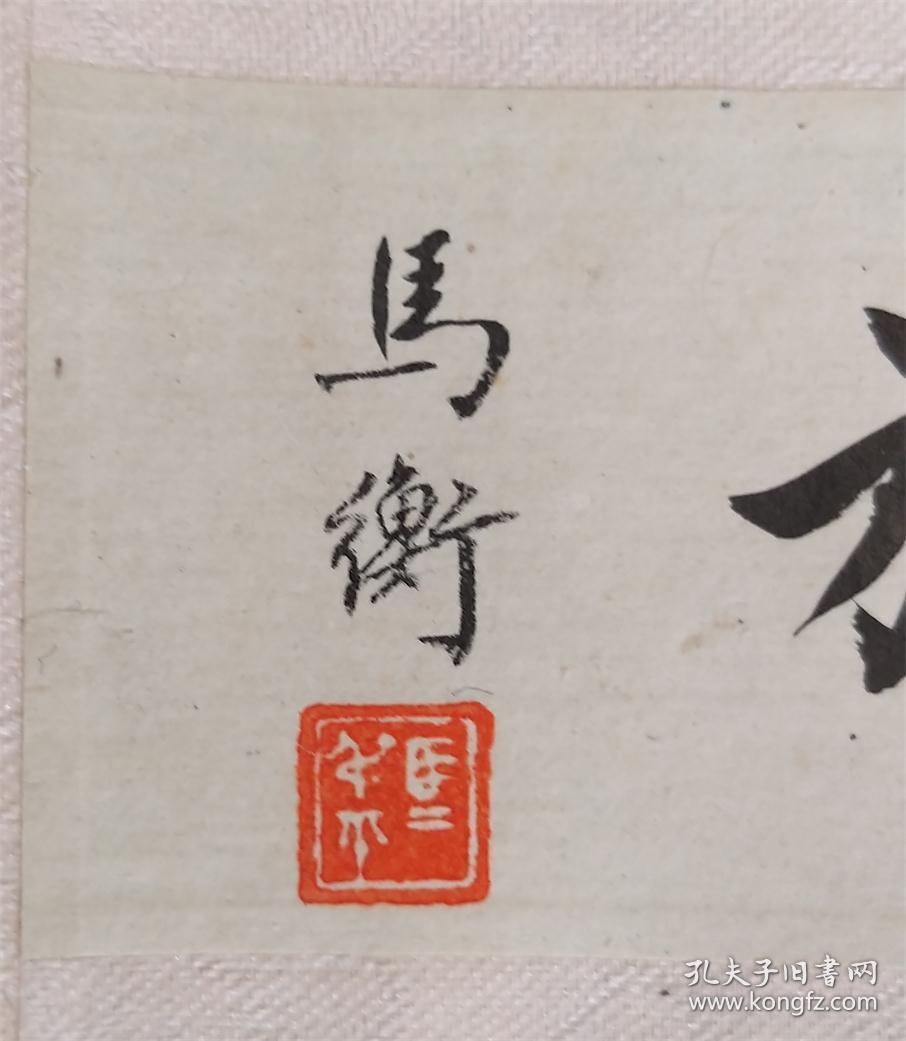 馬衡
孔夫子旧书网
www.kongfz.com